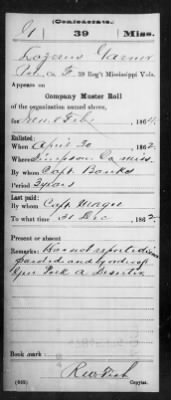 (Confederate.)
G 39 Miss.
Lazarus Garner
Co. F, 39 Reg't Mississippi Vols.
Appears on
Company Muster Roll
of the organization named above,
for Jan & Feb, 1864.
Enlisted:
When April 30, 1862.
Where Simpson Co Miss.
By whom Capt Banks
Period 3 years
Last paid:
By whom Capt Magee
To what time 31 Dec, 1862.
Present or absent
Remarks: Has not reported since
paroled and
Deserter
Book mark:
Copyist.